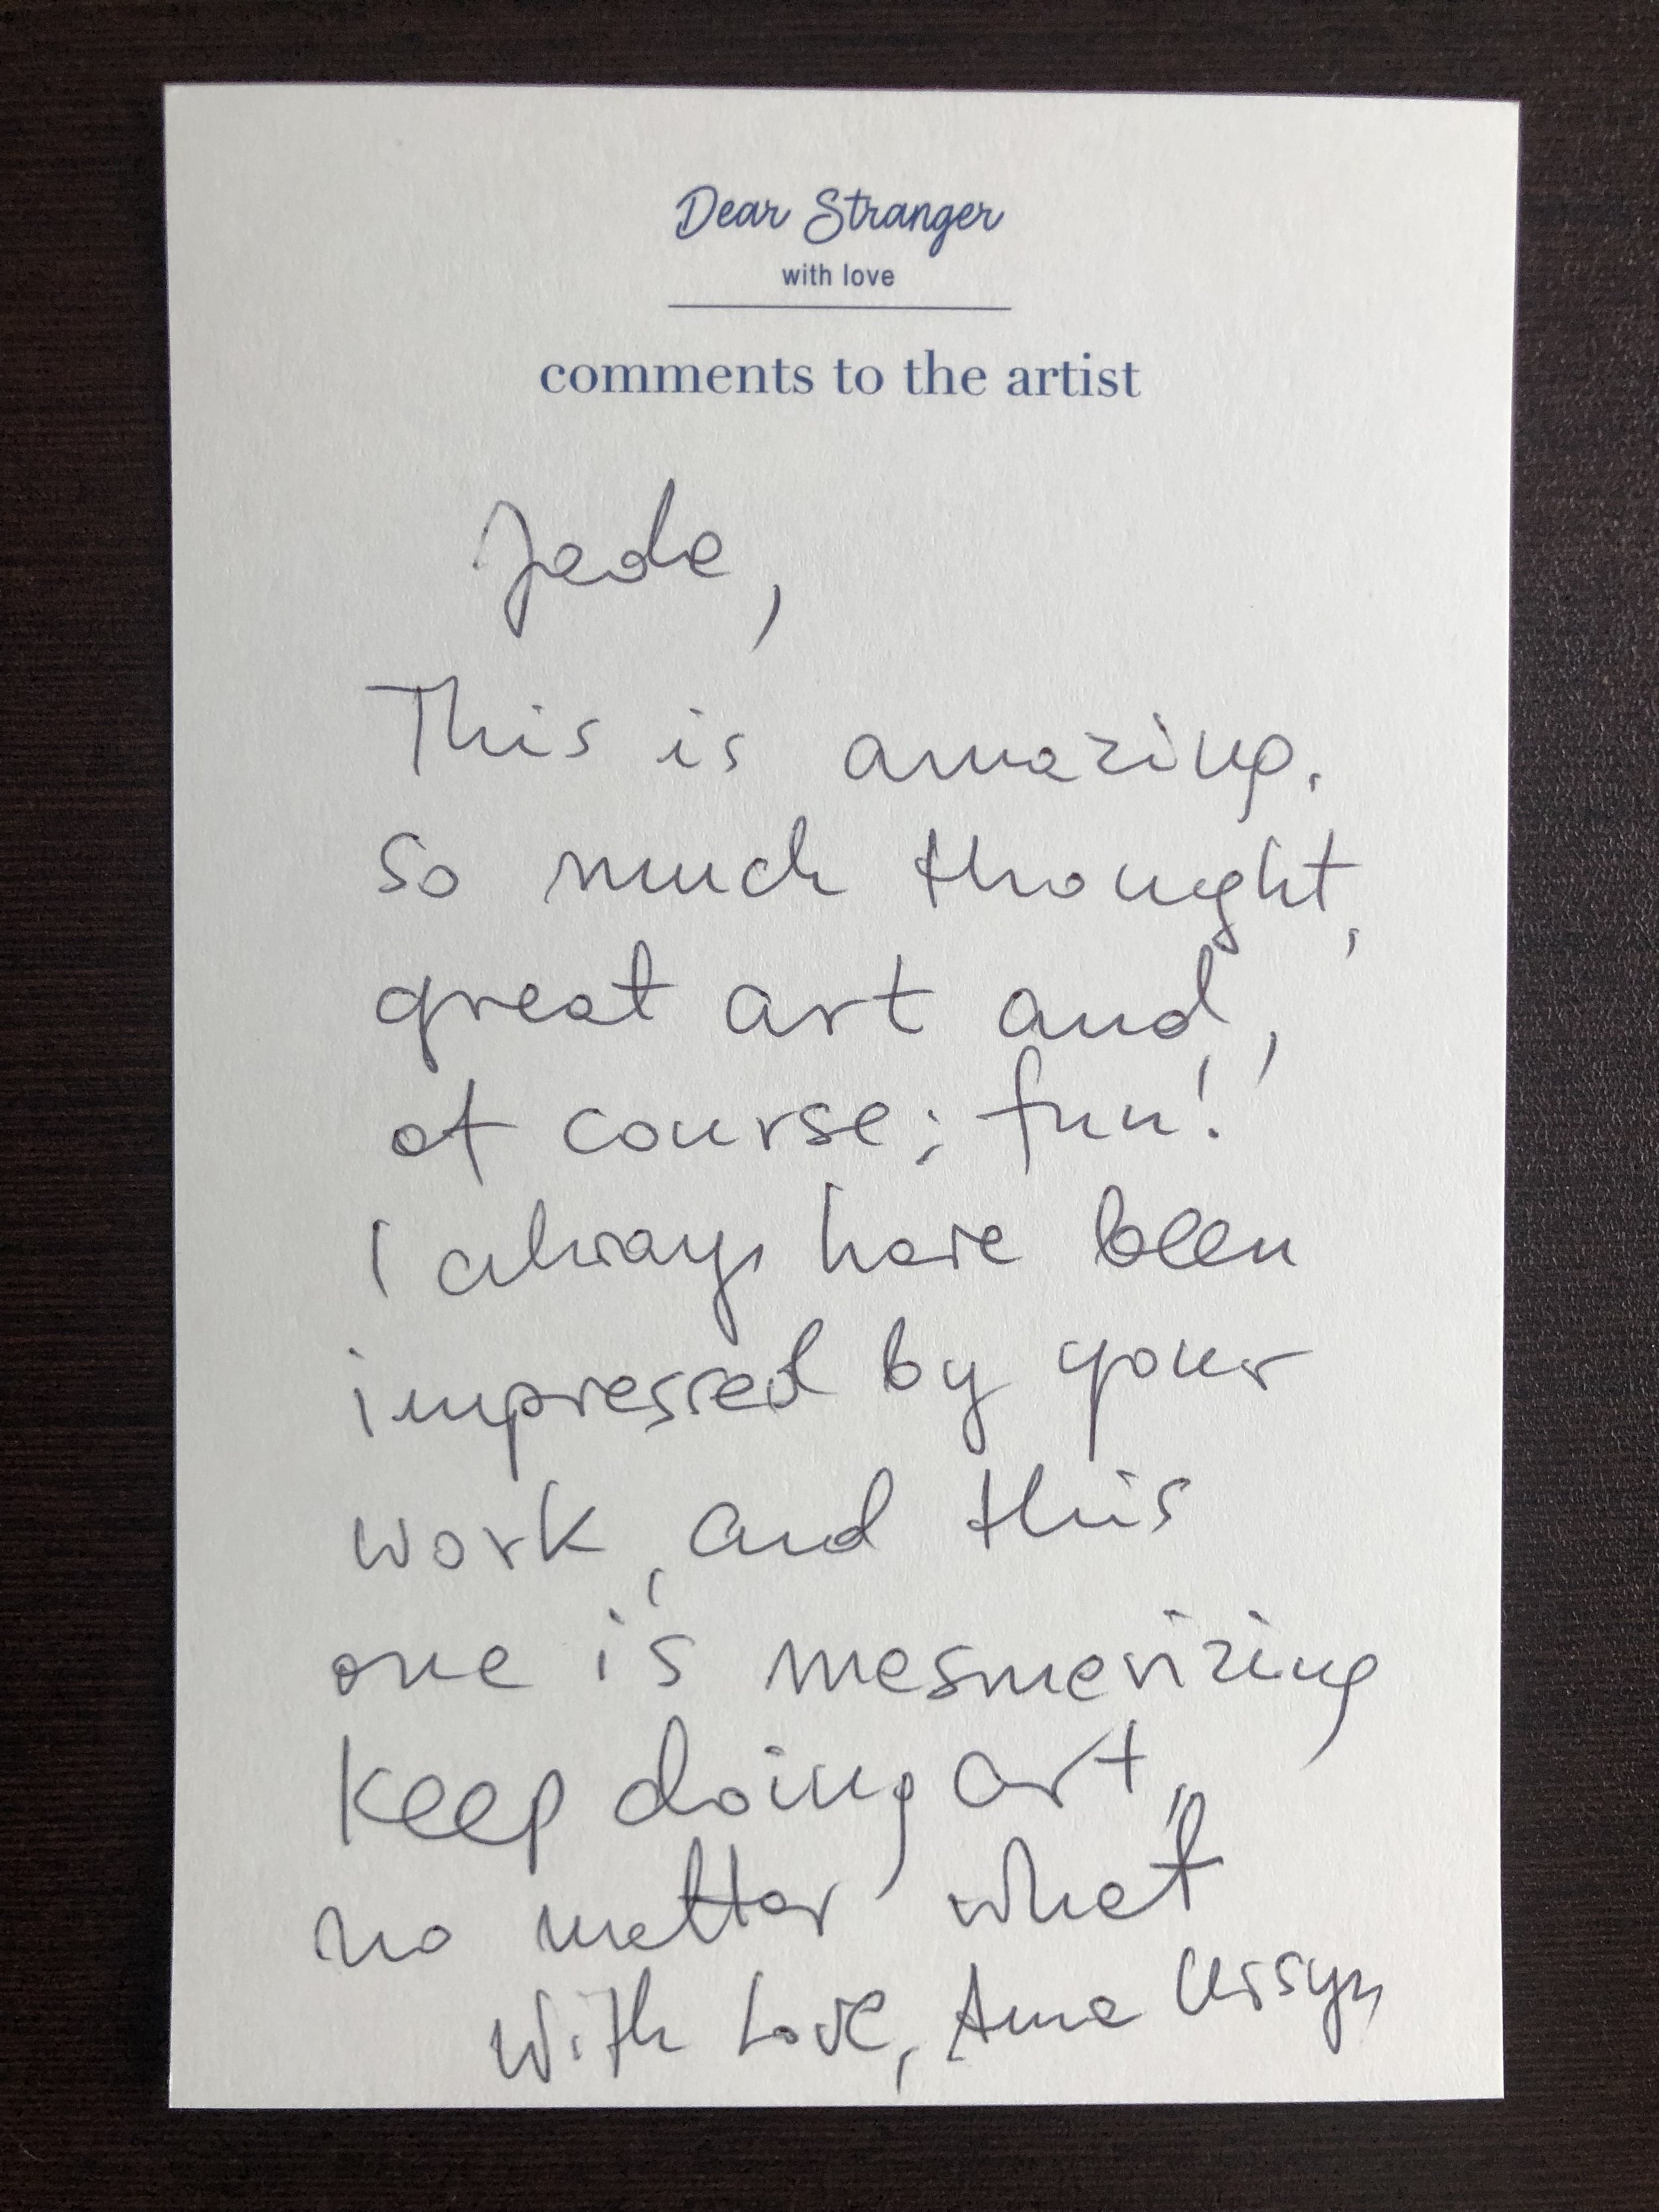 Dear Stranger
with love
comments to the artist
Jade,
This is amazing.
So much thought,
great art and,
of course; fun!
I always have been
impressed by your
work, and this
one is mesmerizing
Keep doing art,
no matter what
With Love,